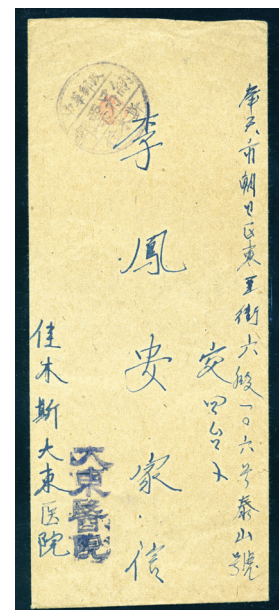 奉天市朝日区東亜街六段一〇六号泰山號
交四台下
李鳳安家信
佳木斯大東医院
大東醫院
中華郵政